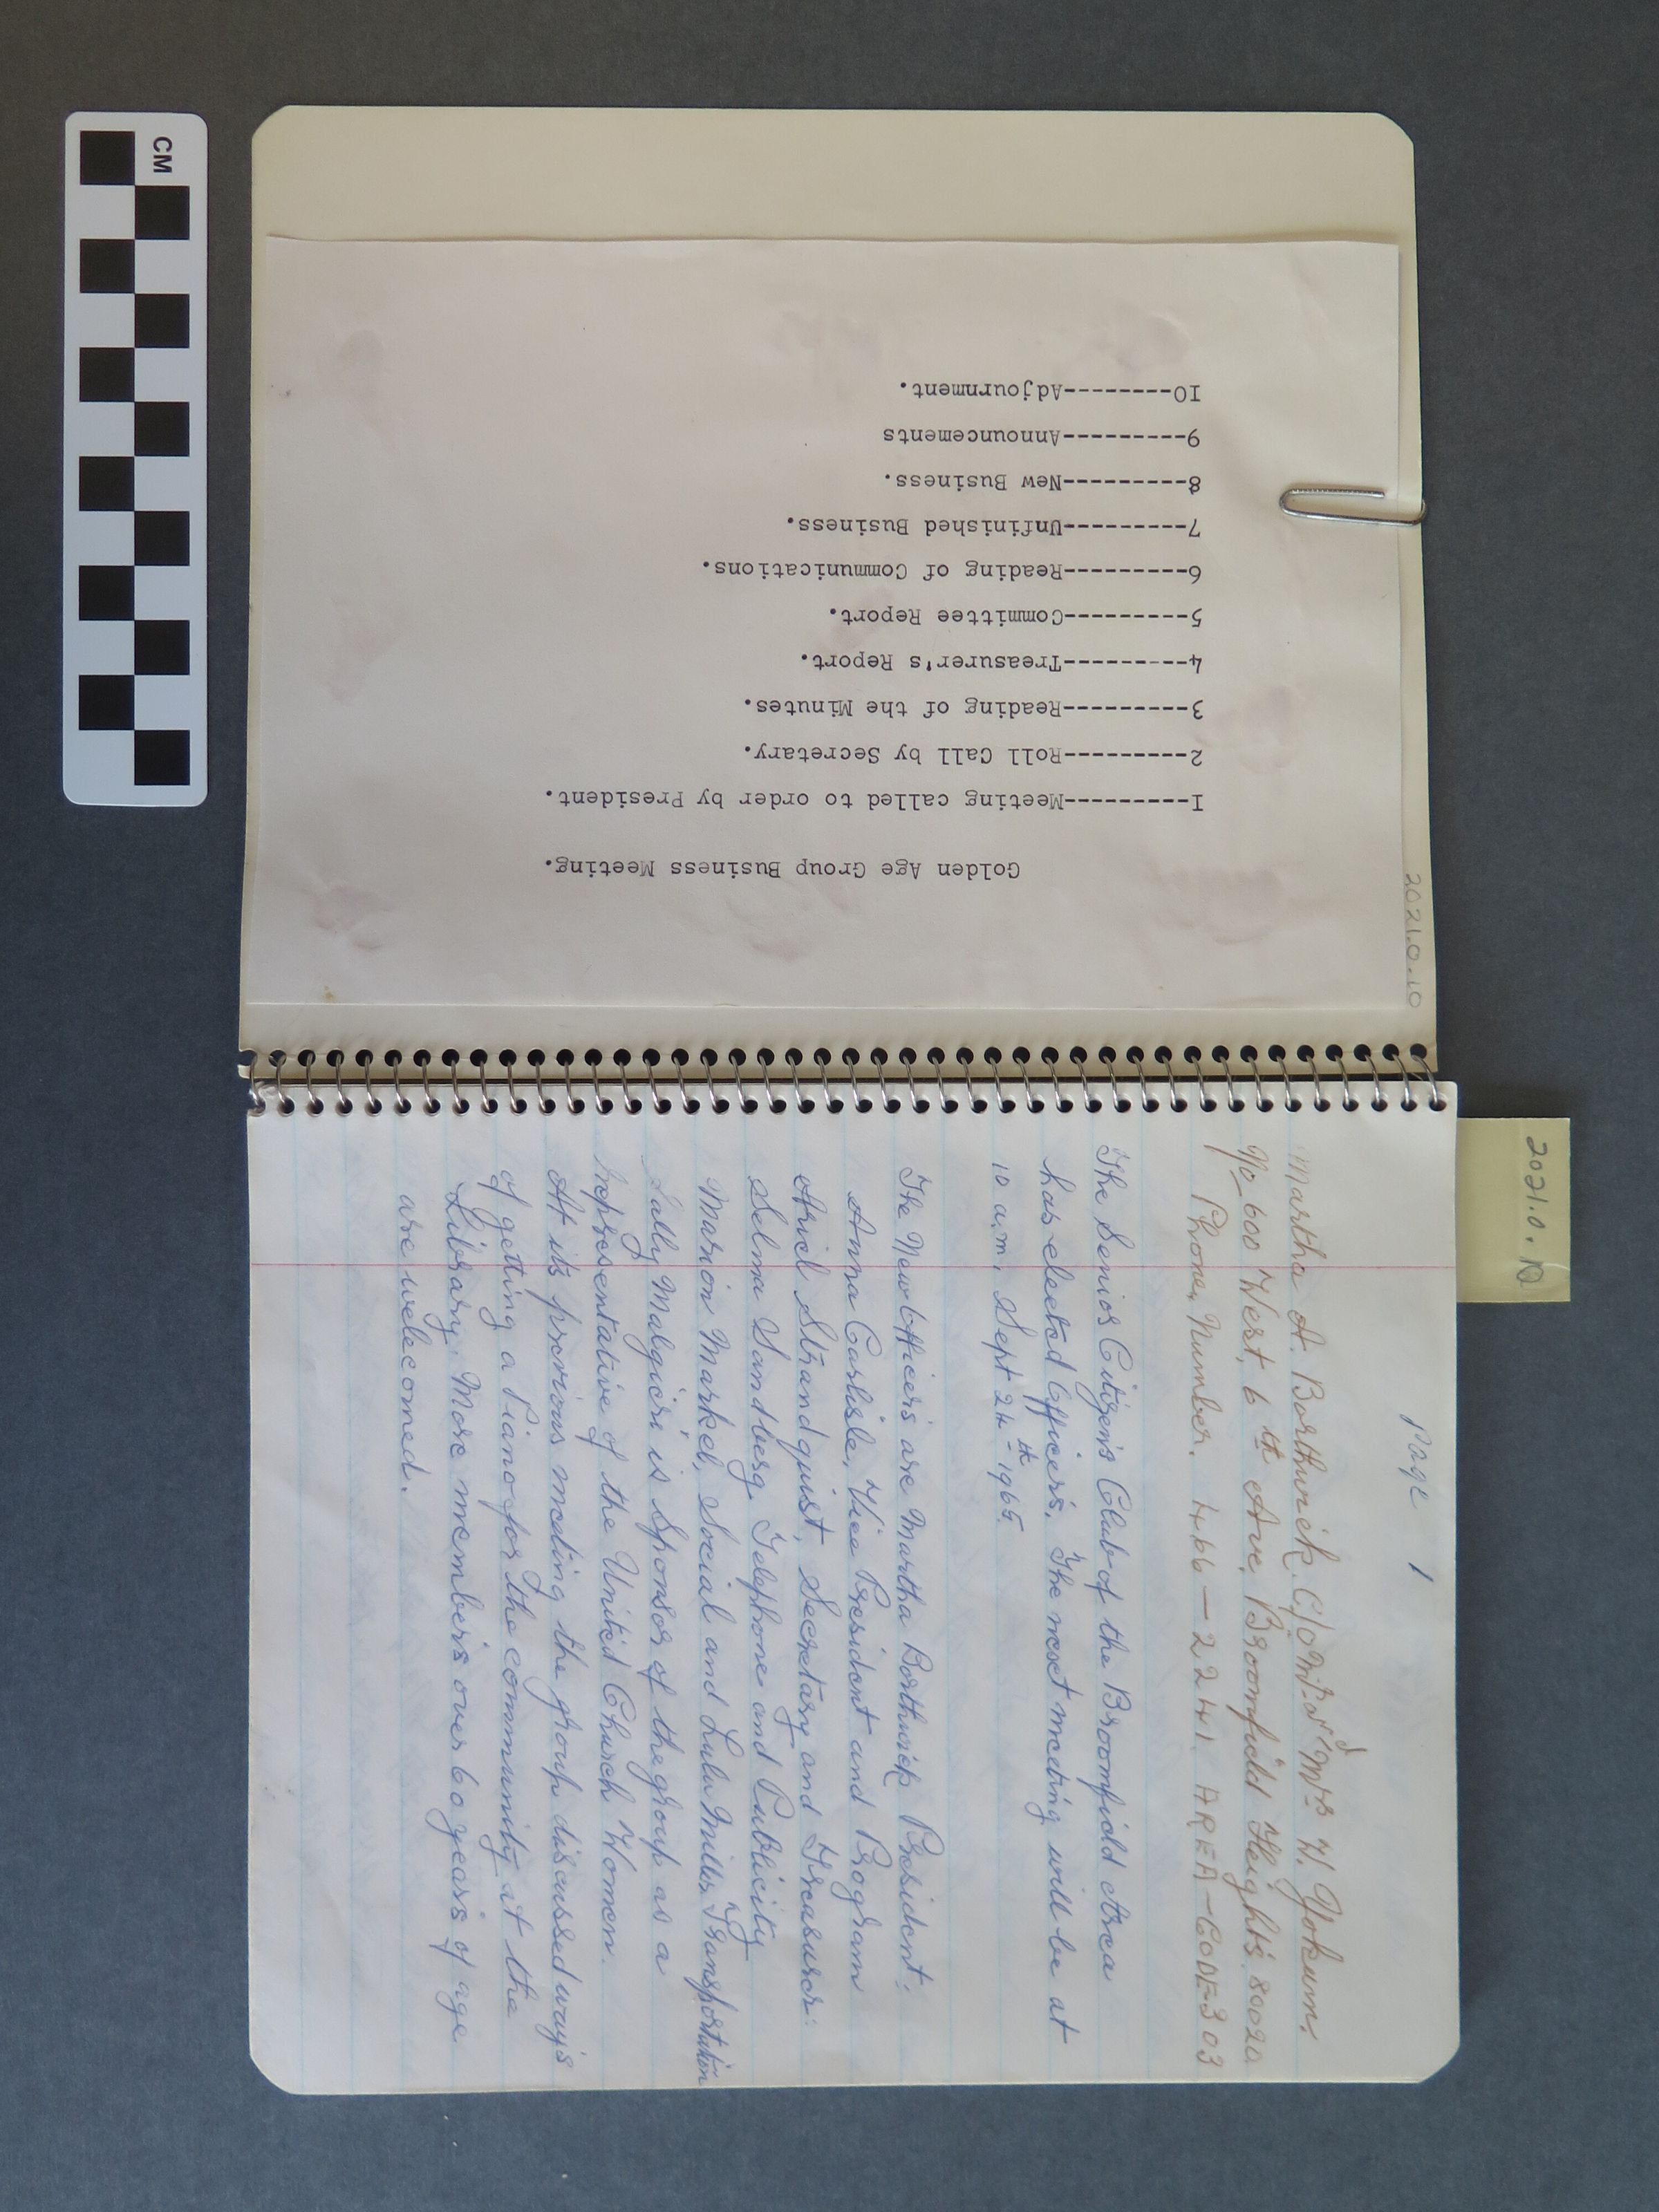 CM
Golden Age Group Business Meeting.
I---------Meeting called to order by President.
2---------Roll Call by Secretary.
3---------Reading of the Minutes.
4---------Treasurer's Report.
5---------Committee Report.
6---------Reading of Communications.
7---------Unfinished Business.
8---------New Business.
9---------Announcements
IO--------Adjournment.
2021.0.10
2021.0.10
Page 1
Martha A. Borthwick. C/o Mr. and Mrs W. Yokum.
No 600 West 6th Ave. Broomfield Heights. 80020
Phone, Number. 466-2241. AREA-CODE-303
The Senior Citizen's Club of the Broomfield Area
has elected Officer's. The next meeting will be at
10 a.m. Sept 24th-1965.
The New Officers are Martha Borthwick President:
Anna Carlisle, Vice President and Program
Ariel Strandquist, Secretary and Treasurer:
Selma Sandberg. Telephone and Publicity
Marion Markel, Social and Lulu Miller, Transportation
Sally Malgieri is Sponsor of the group as a
representative of the United Church Women.
At its previous meeting the group discussed way's
of getting a Piano for the community at the
Library. More member's over 60 years of age
are welcomed.